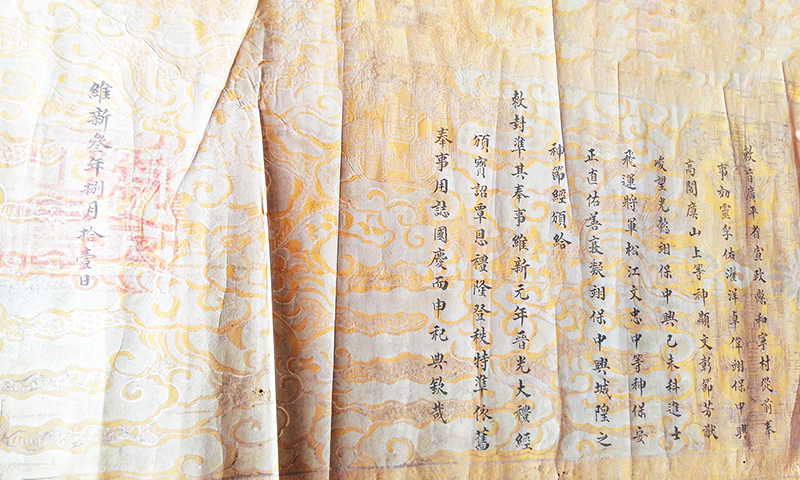 敕旨廣平省宣政縣和寧村從前奉
事劭靈孚佑濯洋卓偉翊保中興
高閣虞山上等神顯文彰節芳猷
峻望光懿翊保中興己未科進士
飛運將軍松江文忠中等神保安
正直佑善翊保中興城隍之
神節經頒給
敕封準其奉事維新元年晉光大禮經
頒寶詔覃恩禮隆登秩特準依舊
奉事用誌國慶而申祀典欽哉
維新叁年捌月拾壹日